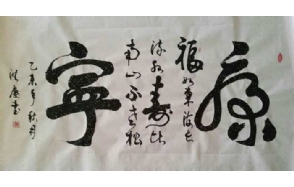 康
福如東海長
流水壽比
南山不老松
寧
乙未年秋月